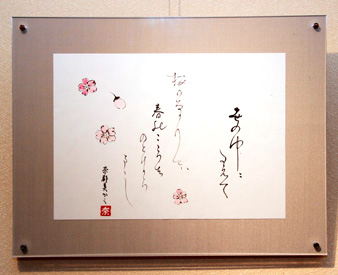 世の中に
たえて
桜のなかりせば
春のこころは
のどけから
まし